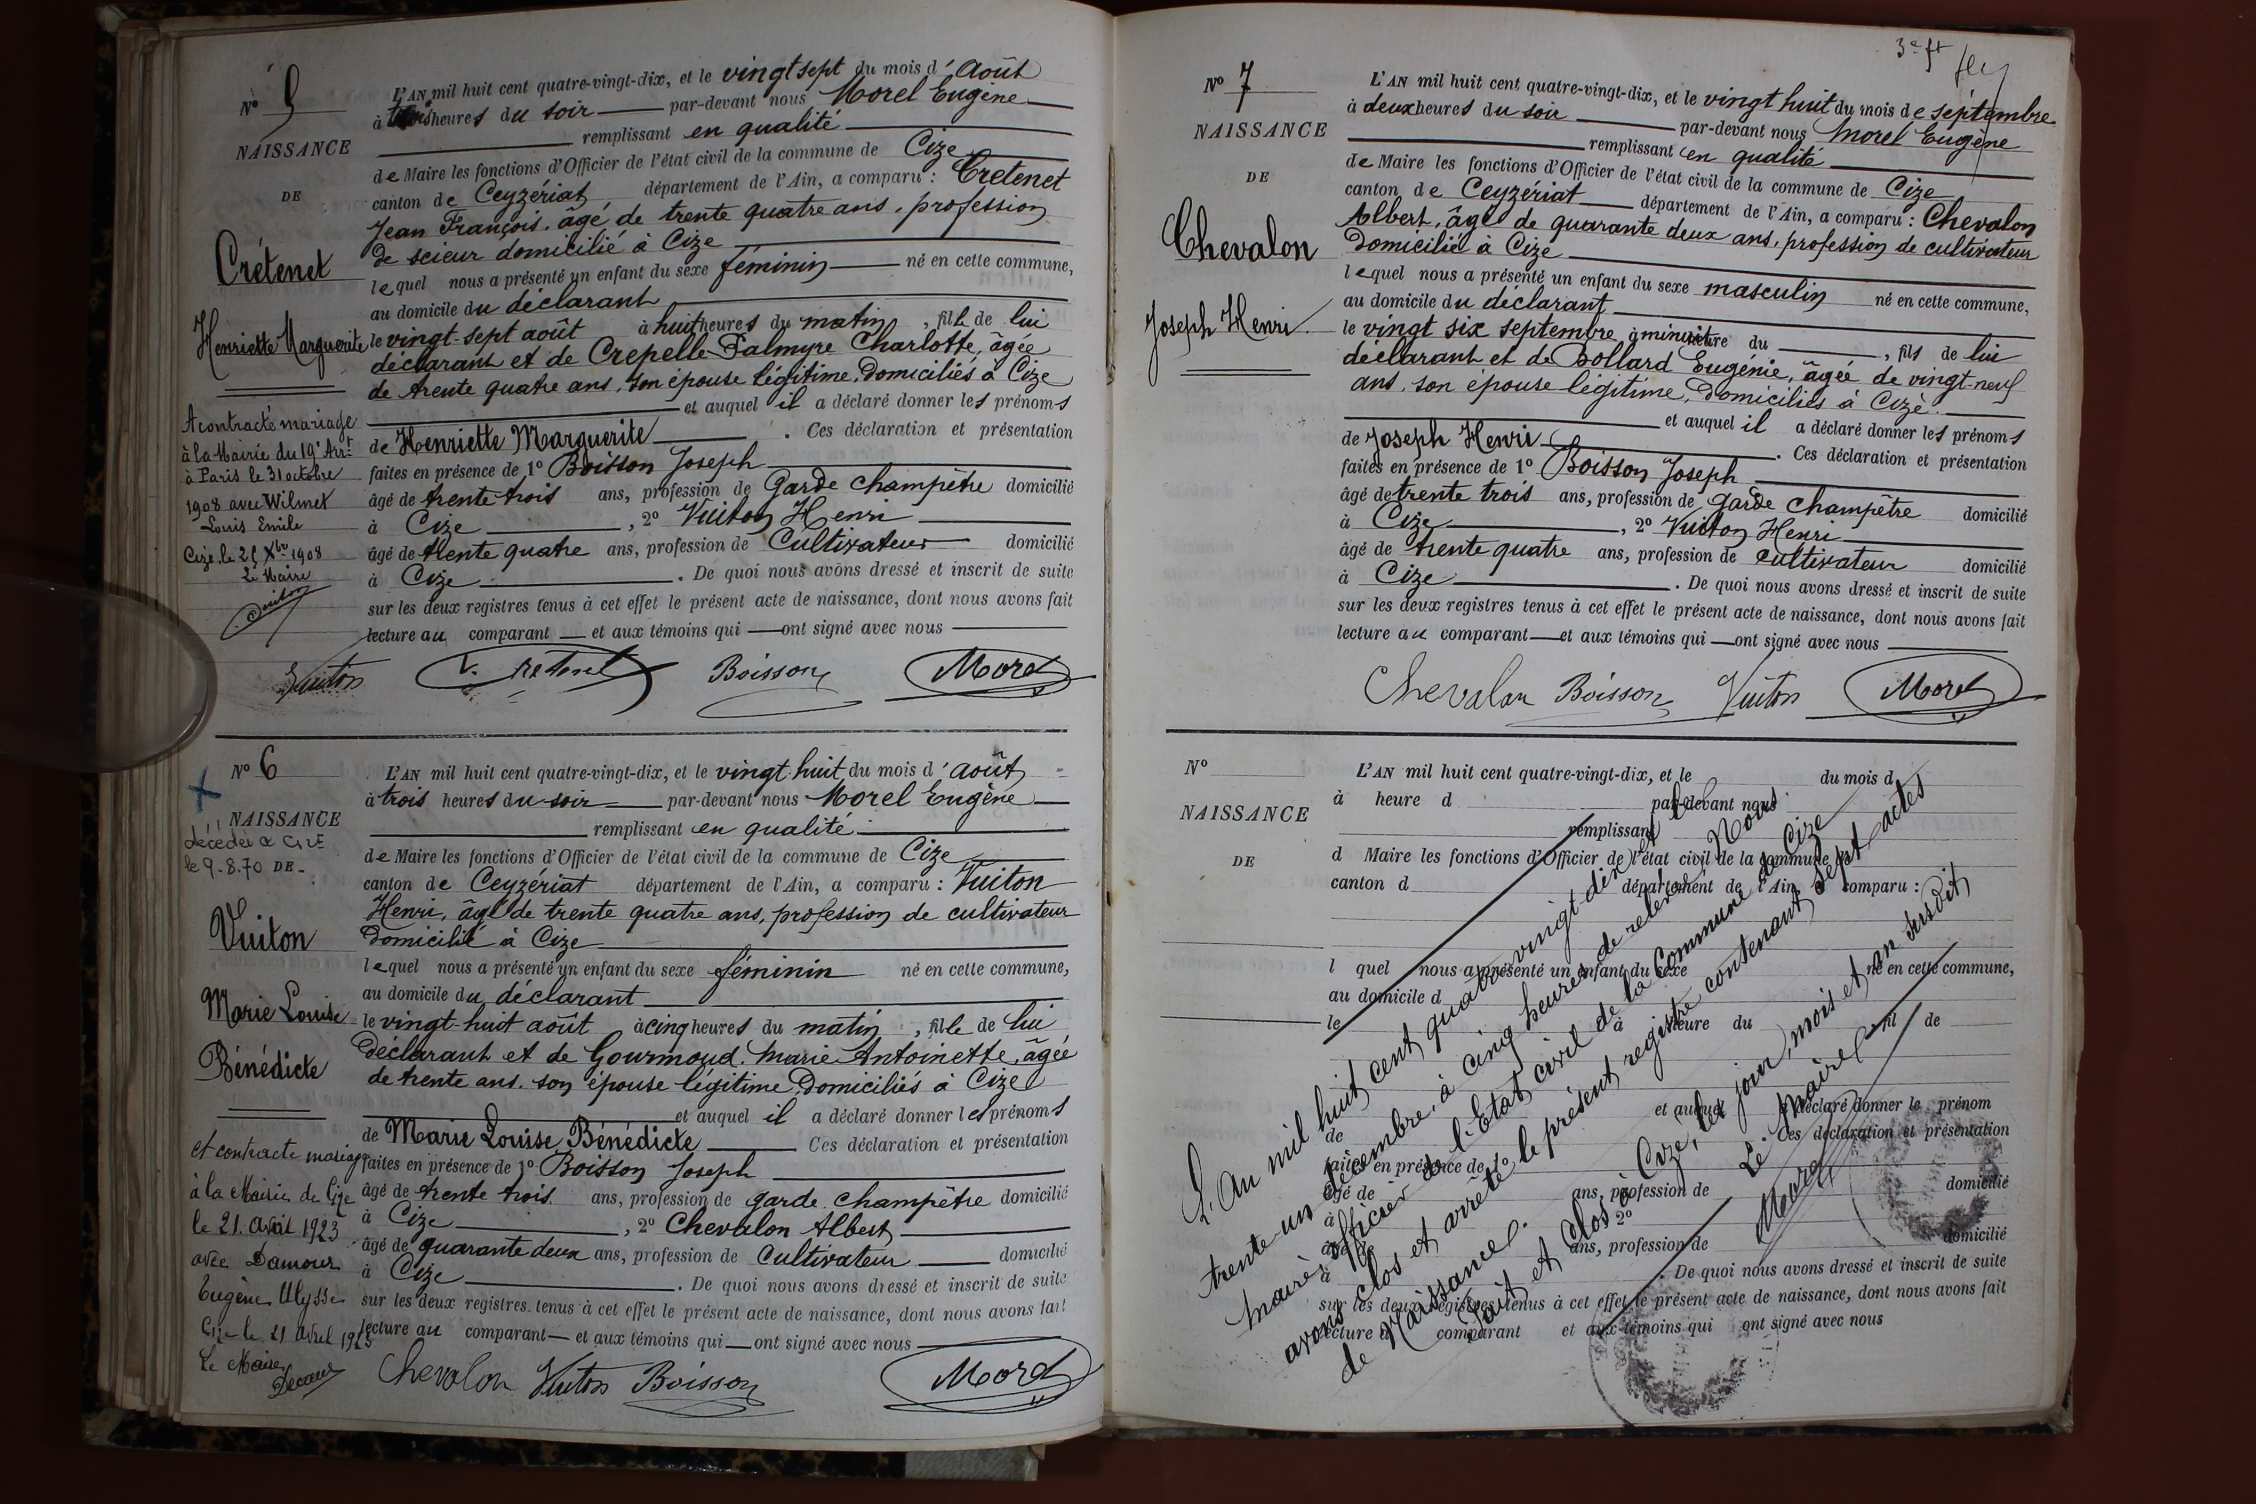 Nº 5
NAISSANCE
DE
Crétenet
Henriette Marguerite
A contracté mariage
à la Mairie du 19e Arrt
à Paris le 31 octobre
1908 avec Wilmet
Louis Emile
Cize, le 25 Xbre 1908
Le Maire
Vuiton
L'AN mil huit cent quatre-vingt-dix, et le vingt sept du mois d'Août
à trois heures du soir par-devant nous Morel Eugène
remplissant en qualité
de Maire les fonctions d'Officier de l'état civil de la commune de Cize
canton de Ceyzériat département de l'Ain, a comparu : Crétenet
Jean François, âgé de trente quatre ans, profession
de scieur domicilié à Cize
lequel nous a présenté un enfant du sexe féminin né en cette commune,
au domicile du déclarant
le vingt-sept août à huit heures du matin, fille de lui
déclarant et de Crepelle Palmyre Charlotte, âgée
de trente quatre ans, son épouse légitime, domiciliés à Cize
et auquel il a déclaré donner les prénoms
de Henriette Marguerite. Ces déclaration et présentation
faites en présence de 1º Boisson Joseph
âgé de trente-trois ans, profession de Garde champêtre domicilié
à Cize, 2º Vuiton Henri
âgé de trente quatre ans, profession de Cultivateur domicilié
à Cize. De quoi nous avons dressé et inscrit de suite
sur les deux registres tenus à cet effet le présent acte de naissance, dont nous avons fait
lecture au comparant et aux témoins qui ont signé avec nous
Vuiton Cretenet Boisson Morel
Nº 6
NAISSANCE
décédée à Cize
le 9.8.70 DE
Vuiton
Marie Louise
Bénédicte
et contracte mariage
à la Mairie de Cize
le 21 Avril 1923
avec Damour
Eugène Ulysse
Cize le 21 avril 1923
Le Maire
L'AN mil huit cent quatre-vingt-dix, et le vingt huit du mois d'août
à trois heures du soir par-devant nous Morel Eugène
remplissant en qualité
de Maire les fonctions d'Officier de l'état civil de la commune de Cize
canton de Ceyzériat département de l'Ain, a comparu : Vuiton
Henri, âgé de trente quatre ans, profession de cultivateur
domicilié à Cize
lequel nous a présenté un enfant du sexe féminin né en cette commune,
au domicile du déclarant
le vingt-huit août à cinq heures du matin, fille de lui
déclarant et de Gourmoud Marie Antoinette, âgée
de trente ans, son épouse légitime, domiciliés à Cize
et auquel il a déclaré donner les prénoms
de Marie Louise Bénédicte Ces déclaration et présentation
faites en présence de 1º Boisson Joseph
âgé de trente trois ans, profession de garde champêtre domicilié
à Cize, 2º Chevalon Albert
âgé de quarante deux ans, profession de Cultivateur domicilié
à Cize. De quoi nous avons dressé et inscrit de suite
sur les deux registres tenus à cet effet le présent acte de naissance, dont nous avons fait
lecture au comparant et aux témoins qui ont signé avec nous
Chevalon Vuiton Boisson Morel
3e ft
Nº 7
NAISSANCE
DE
Chevalon
Joseph Henri
L'AN mil huit cent quatre-vingt-dix, et le vingt huit du mois de septembre
à deux heures du soir par-devant nous Morel Eugène
remplissant en qualité
de Maire les fonctions d'Officier de l'état civil de la commune de Cize
canton de Ceyzériat département de l'Ain, a comparu : Chevalon
Albert, âgé de quarante deux ans, profession de cultivateur
domicilié à Cize
lequel nous a présenté un enfant du sexe masculin né en cette commune,
au domicile du déclarant
le vingt six septembre à minuit heure du, fils de lui
déclarant et de Bollard Eugénie, âgée de vingt-neuf
ans, son épouse légitime, domiciliés à Cize
et auquel il a déclaré donner les prénoms
de Joseph Henri. Ces déclaration et présentation
faites en présence de 1º Boisson Joseph
âgé de trente trois ans, profession de garde champêtre domicilié
à Cize, 2º Vuiton Henri
âgé de trente quatre ans, profession de cultivateur domicilié
à Cize. De quoi nous avons dressé et inscrit de suite
sur les deux registres tenus à cet effet le présent acte de naissance, dont nous avons fait
lecture au comparant et aux témoins qui ont signé avec nous
Chevalon Boisson Vuiton Morel
Nº
NAISSANCE
DE
L'AN mil huit cent quatre-vingt-dix, et le du mois d
à heure d par-devant nous
remplissant
d Maire les fonctions d'Officier de l'état civil de la commune d
canton d département de l'Ain comparu :
l quel nous a présenté un enfant du sexe né en cette commune,
au domicile d
le à heure du, fil de
et auquel a déclaré donner le prénom
de Ces déclaration et présentation
faites en présence de 1º
âgé de ans, profession de domicilié
à 2º
âgé de ans, profession de domicilié
à. De quoi nous avons dressé et inscrit de suite
sur les deux registres tenus à cet effet le présent acte de naissance, dont nous avons fait
lecture a comparant et aux témoins qui ont signé avec nous
L'An mil huit cent quatre vingt dix et le
trente-un décembre, à cinq heures de relevée, Nous
maire, officier de l'Etat civil de la Commune de Cize
avons clos et arrêté le présent registre contenant sept actes
de Naissance.
Fait et clos à Cize, les jour, mois et an susdit,
Le Maire
Morel